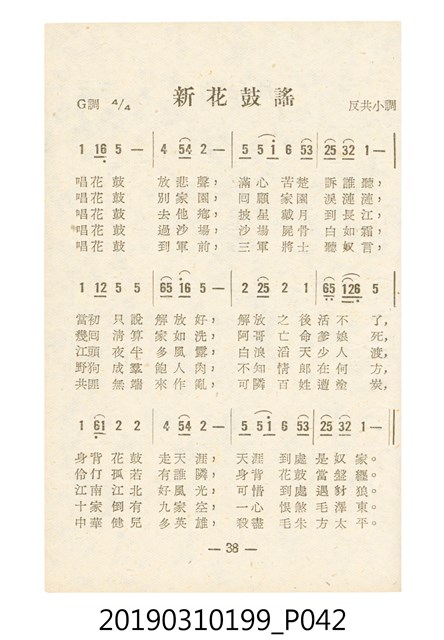 新花鼓謠
G調 4/4 反共小調
1 16 5 — | 4 54 2 — | 5 5 i 6 53 | 25 32 1 — |
唱花鼓 放悲聲， 滿心苦楚 訴誰聽，
唱花鼓 別家園， 回顧家園 淚漣漣，
唱花鼓 去他鄉， 披星戴月 到長江，
唱花鼓 過沙場， 沙場屍骨 白如霜，
唱花鼓 到軍前， 三軍將士 聽奴言，
1 12 5 5 | 65 16 5 — | 2 25 2 1 | 65 126 5 |
當初只說 解放好， 解放之後活不了，
幾回清算 家如洗， 阿哥亡命爹娘死，
江頭夜半 多風露， 白浪滔天少人渡，
野狗成羣 飽人肉， 不知情郎在何方，
共匪無端 來作亂， 可憐百姓遭塗炭，
1 61 2 2 | 4 54 2 — | 5 5 i 6 53 | 25 32 1 — |
身背花鼓 走天涯， 天涯到處是奴家。
伶仃孤若 有誰憐， 身背花鼓當盤纏。
江南江北 好風光， 可惜到處遇豺狼。
十家倒有 九家空， 一心恨煞毛澤東。
中華健兒 多英雄， 殺盡毛朱方太平。
— 38 —
20190310199_P042